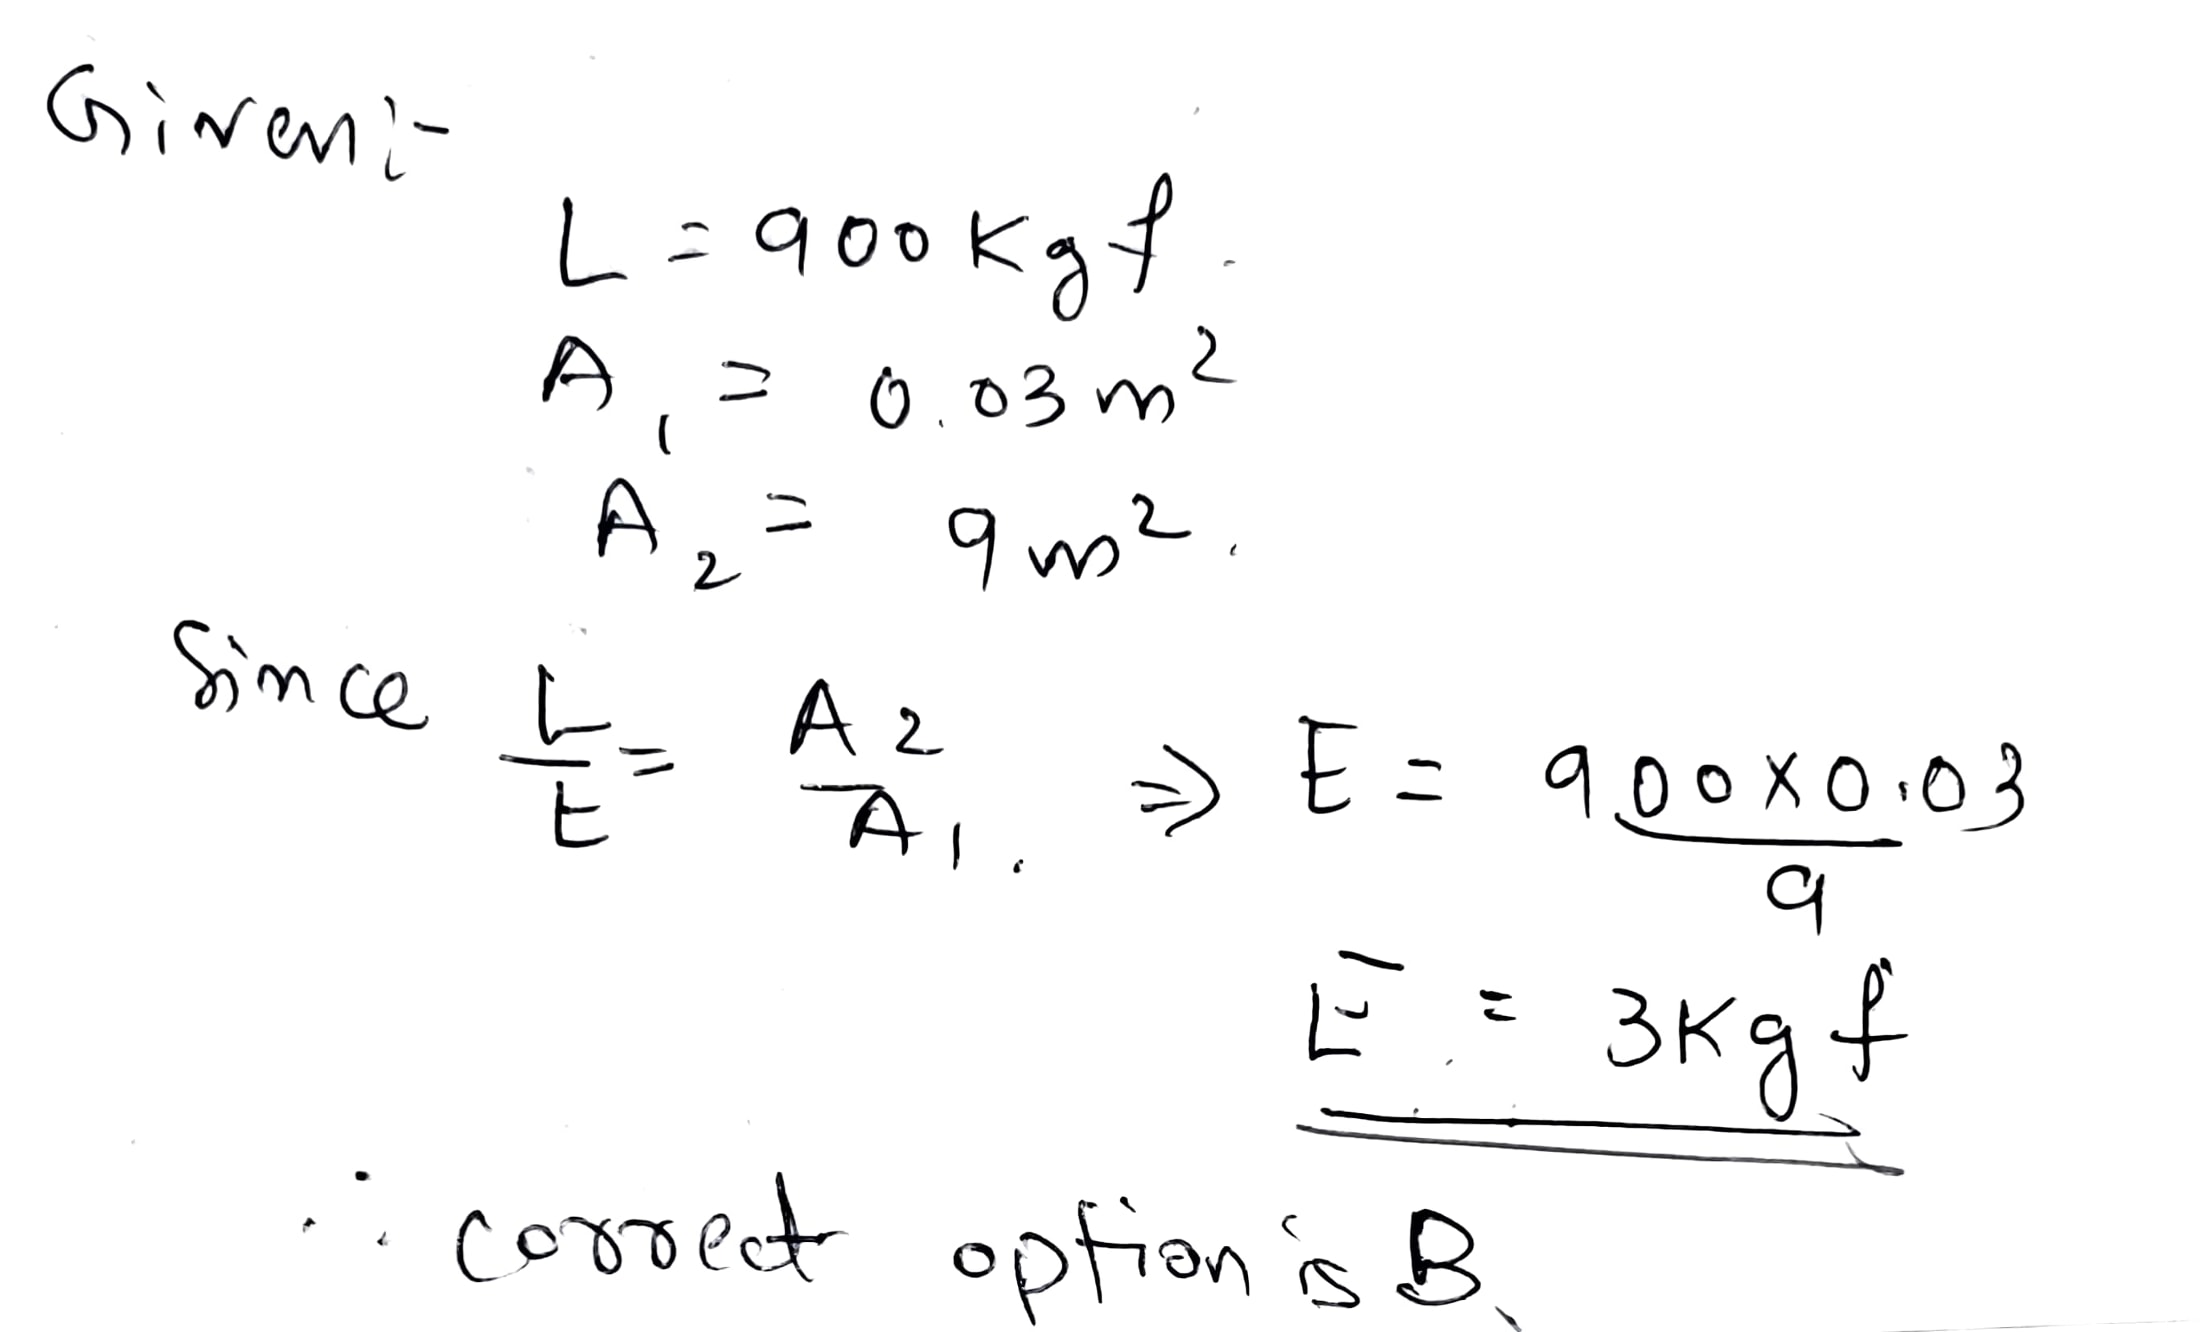 Given:-
L = 900 Kgf.
A₁ = 0.03 m²
A₂ = 9 m².
Since L/E = A2/A1. ⇒ E = 900×0.03/9
E = 3Kgf
∴ correct option is B.